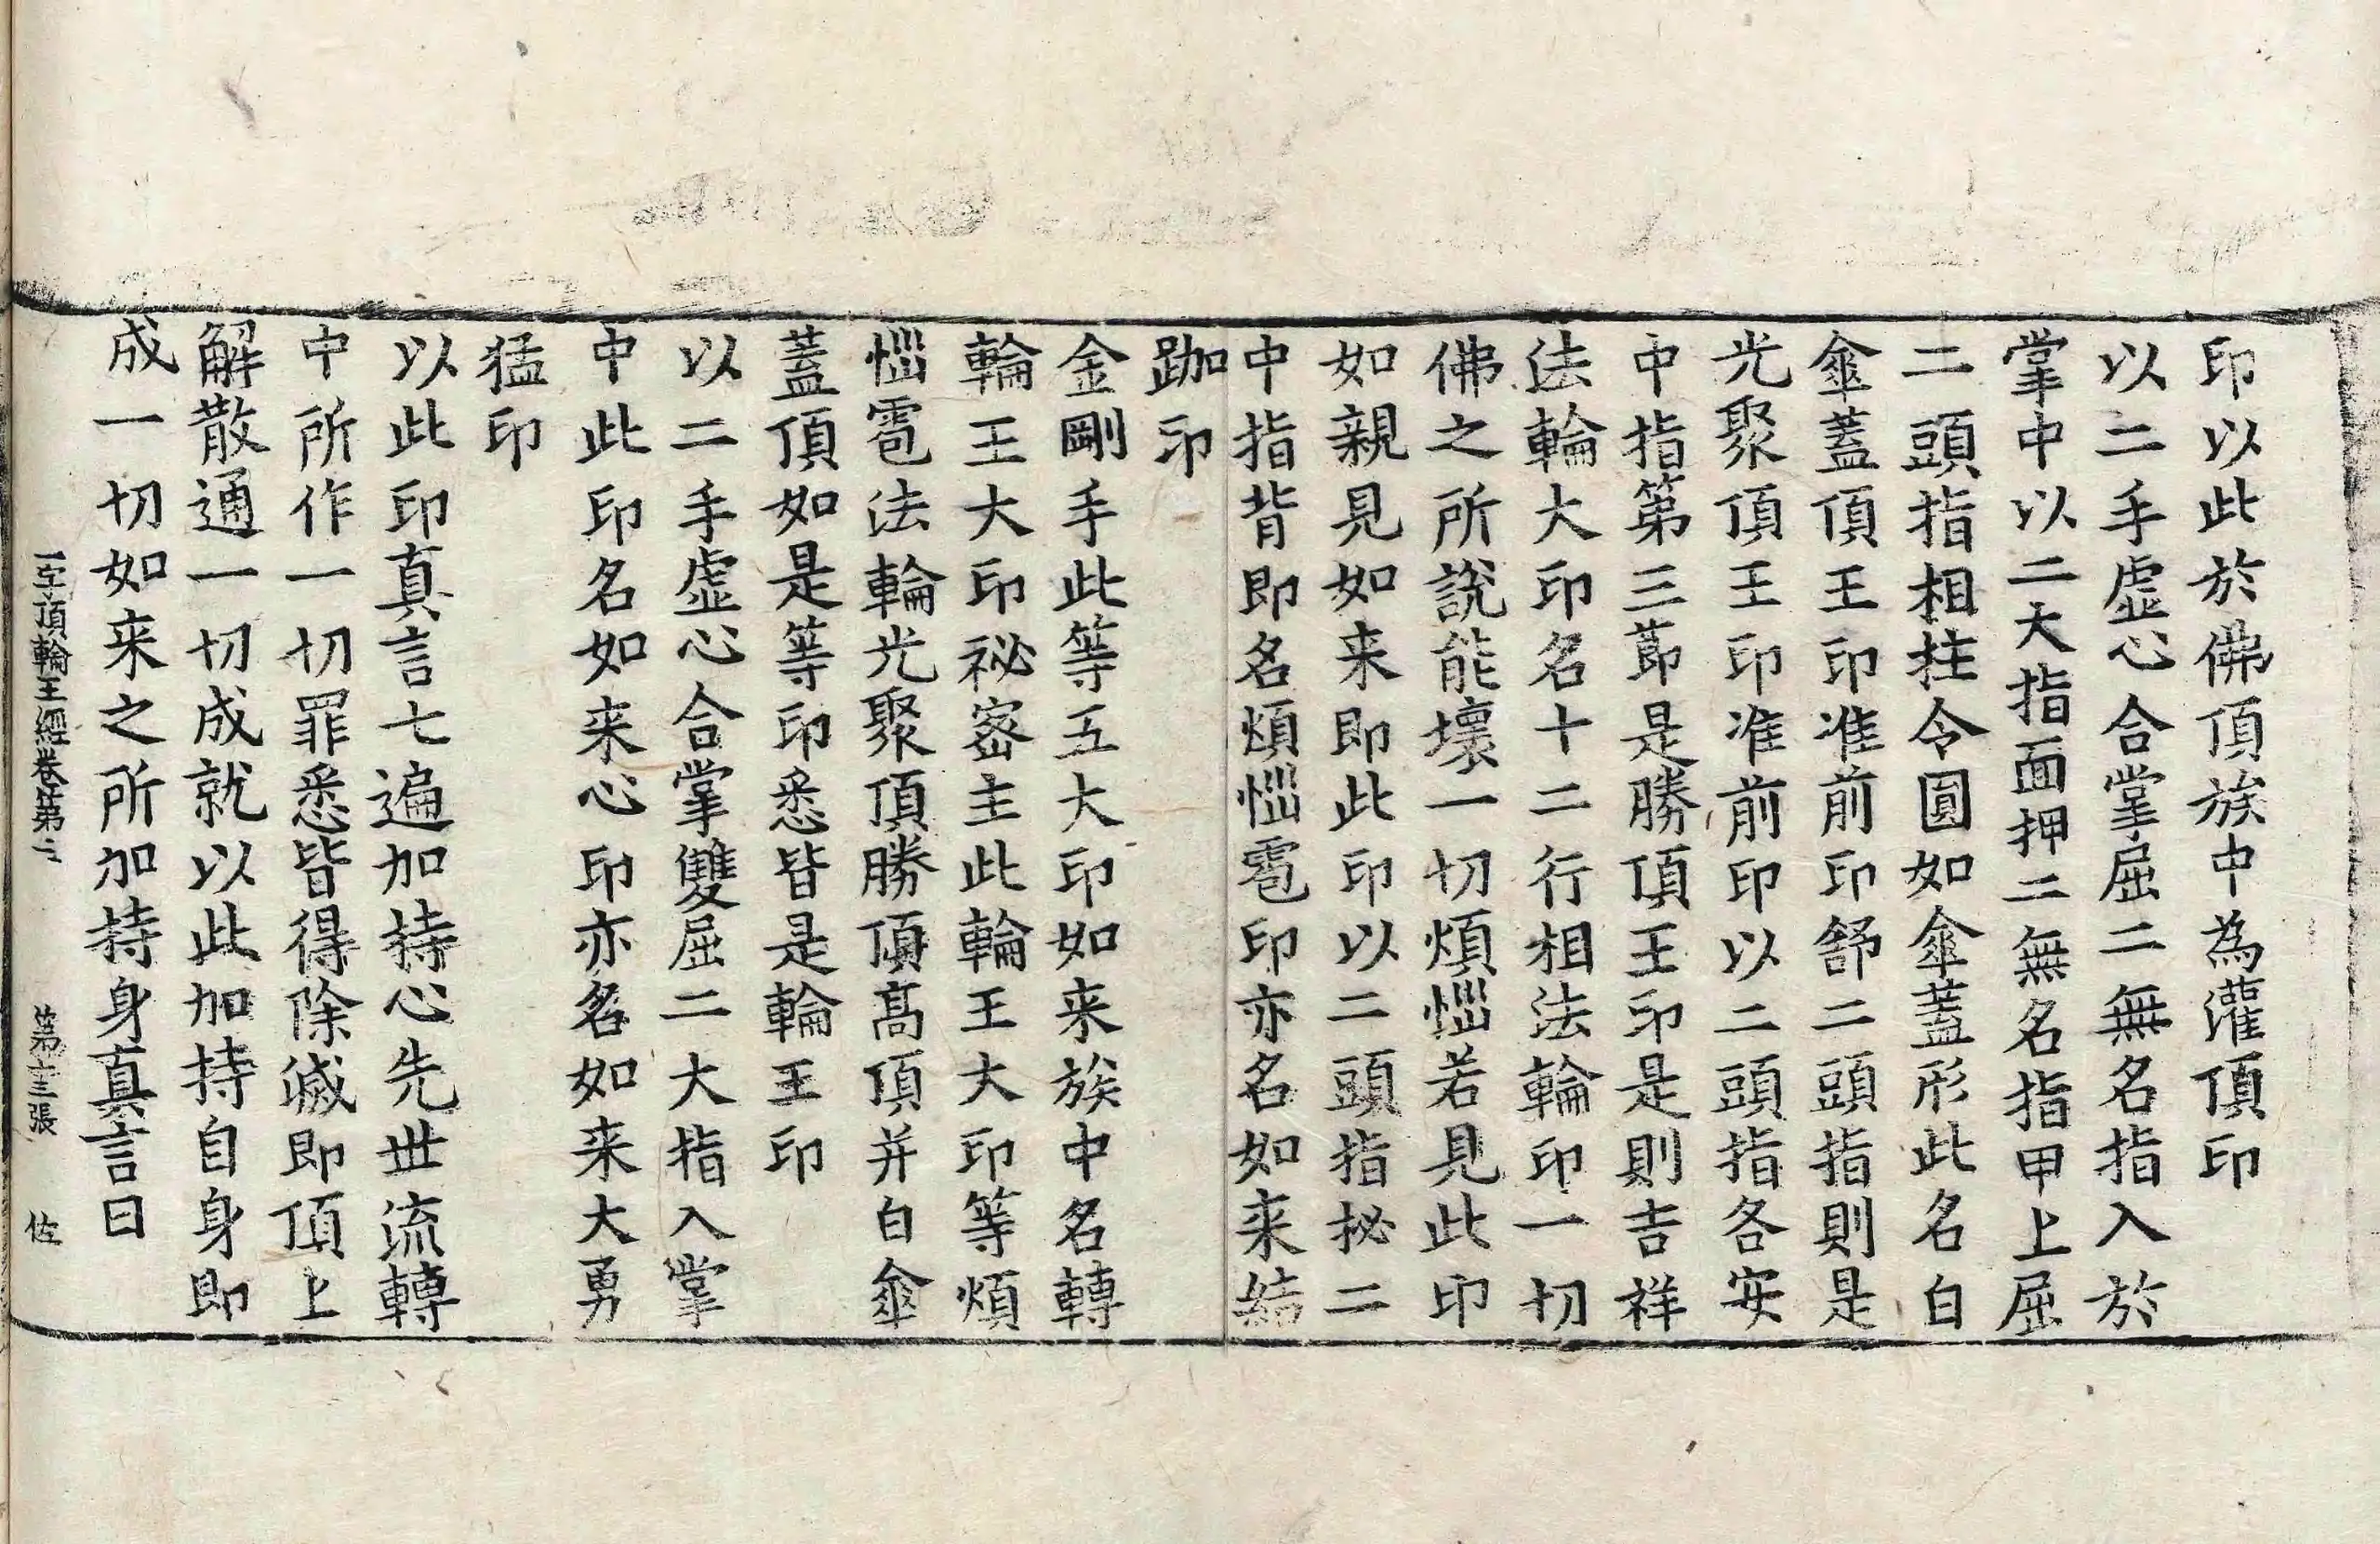 印以此於佛頂族中為灌頂印
以二手虛心合掌屈二無名指入於
掌中以二大指面押二無名指甲上屈
二頭指相拄令圓如傘蓋形此名白
傘蓋頂王印准前印舒二頭指則是
光聚頂王印准前印以二頭指各安
中指第三莭是勝頂王印是則吉祥
法輪大印名十二行相法輪印一切
佛之所說能壞一切煩惱若見此印
如親見如来即此印以二頭指拯二
中指背即名煩惱雹印亦名如来結
跏印
金剛手此等五大印如来族中名轉
輪王大印祕密主此輪王大印等煩
惱雹法輪光聚頂勝頂髙頂并白傘
蓋頂如是等印悉皆是輪王印
以二手虛心合掌雙屈二大指入掌
中此印名如来心印亦名如来大勇
猛印
以此印真言七遍加持心先世流轉
中所作一切罪悉皆得除滅即頂上
解散通一切成就以此加持自身即
成一切如来之所加持身真言曰
一字頂輪王經卷第二 第十三張 佐